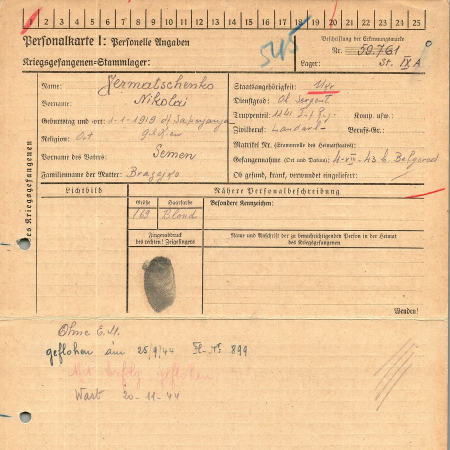 1 2 3 4 5 6 7 8 9 10 11 12 13 14 15 16 17 18 19 20 21 22 23 24 25
Personalkarte I: Personelle Angaben
545
Beschriftung der Erkennungsmarke
Nr. 59761
Kriegsgefangenen=Stammlager:
Lager: St. IV A
Des Kriegsgefangenen
Name: Jermatschenko
Vorname: Nikolai
Geburtstag und =ort: 1-1-1919
Religion: Ort
Vorname des Vaters: Semen
Familienname der Mutter:
Staatsangehörigkeit: Ukr.
Dienstgrad:
Truppenteil: Komp. usw.:
Zivilberuf: Landarb. Berufs-Gr.:
Matrikel Nr. (Stammrolle des Heimatstaates):
Gefangennahme (Ort und Datum): 4-VIII-43 b. Belgorod
Ob gesund, krank, verwundet eingeliefert:
Lichtbild
Nähere Personalbeschreibung
Größe Haarfarbe Besondere Kennzeichen:
169 Blond
Fingerabdruck
des rechten! Zeigefingers
Name und Anschrift der zu benachrichtigenden Person in der Heimat
des Kriegsgefangenen
Wenden!
Ohne E.M.
geflohen am 25/9/44 Fl-Nr 899
geflohen
20-11-44